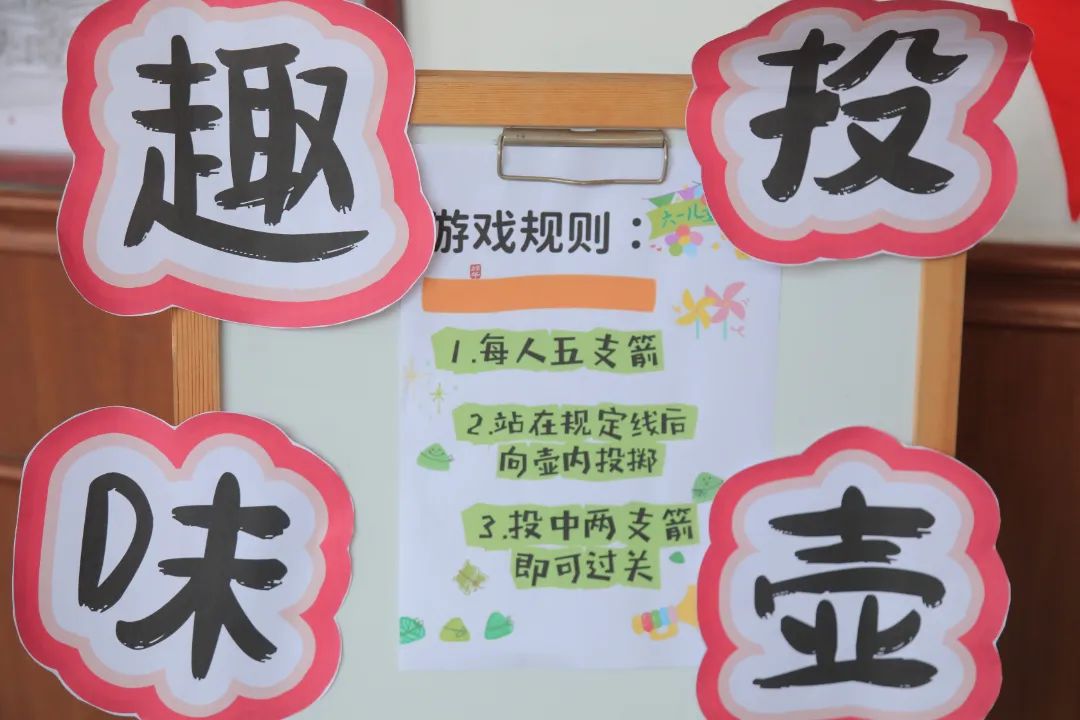 趣味
投壶
游戏规则：
六一儿
1.每人五支箭
2.站在规定线后
向壶内投掷
3.投中两支箭
即可过关